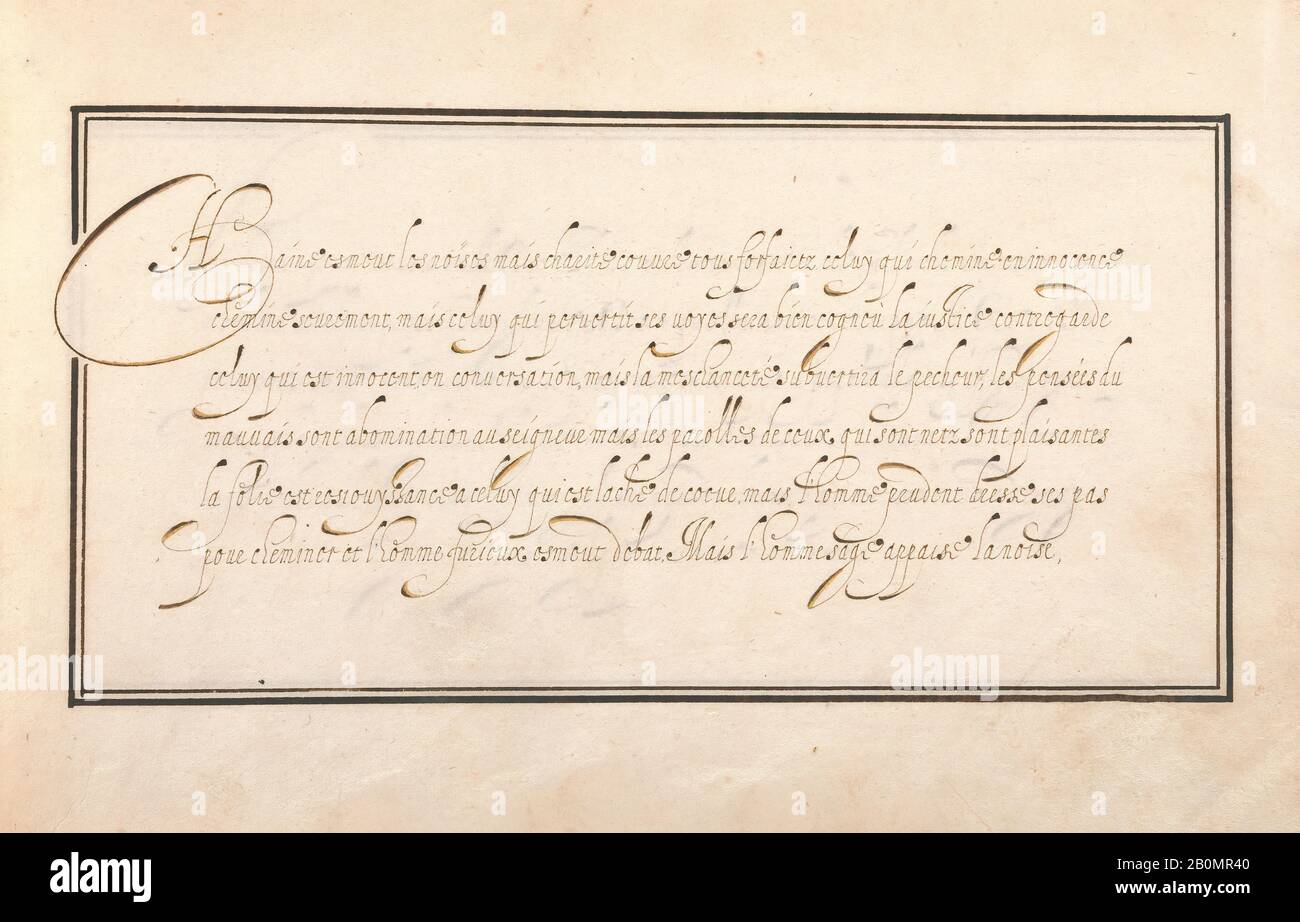 Haine esmeut les noises mais charite couvre tous forfaictz, celuy qui chemine en innocence
chemine seurement, mais celuy qui pervertit ses voyes sera bien cogneu La iustice contregarde
celuy qui est innocent, en conversation, mais la meschanceté subvertira le pecheur, les pensées du
mauvais sont abomination au seigneur mais les parolles de ceux qui sont netz sont plaisantes
la folie est resiouyssance a celuy qui est lache de coeur, mais l'homme prudent dresse ses pas
pour cheminer et l'homme furieux esmeut debat, Mais l'homme sage appaise la noise,
alamy
alamy
Image ID: 2B0MR40
www.alamy.com